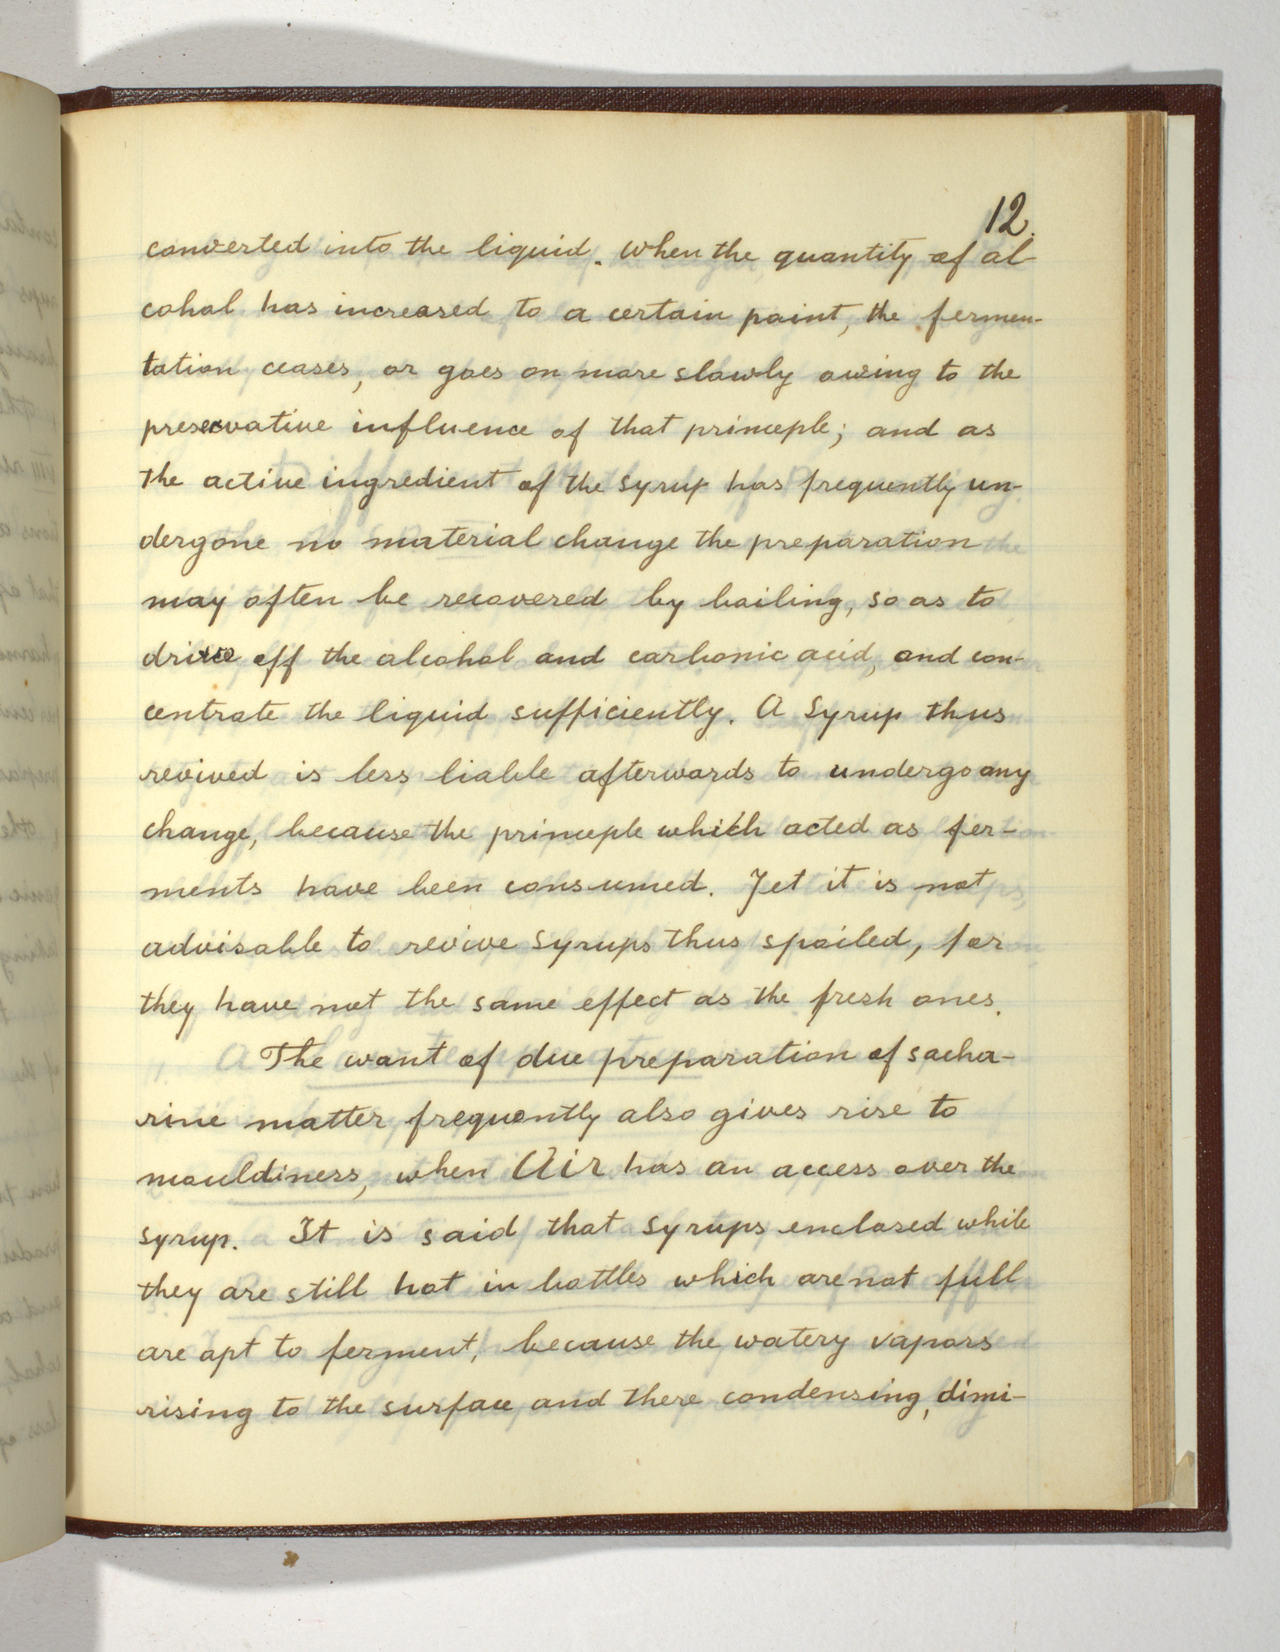 12.
converted into the liquid. When the quantity of al-
cohol has increased to a certain point, the fermen-
tation ceases, or goes on more slowly owing to the
preservative influence of that principle; and as
the active ingredient of the syrup has frequently un-
dergone no material change the preparation
may often be recovered by boiling, so as to
drive off the alcohol and carbonic acid, and con-
centrate the liquid sufficiently. A Syrup thus
revived is less liable afterwards to undergo any
change, because the principle which acted as fer-
ments have been consumed. Yet it is not
advisable to revive syrups thus spoiled, for
they have not the same effect as the fresh ones.
The want of due preparation of sacha-
rine matter frequently also gives rise to
mouldiness, when Air has an access over the
syrup. It is said that syrups enclosed while
they are still hot in bottles which are not full
are apt to ferment, because the watery vapors
rising to the surface and there condensing, dimi-